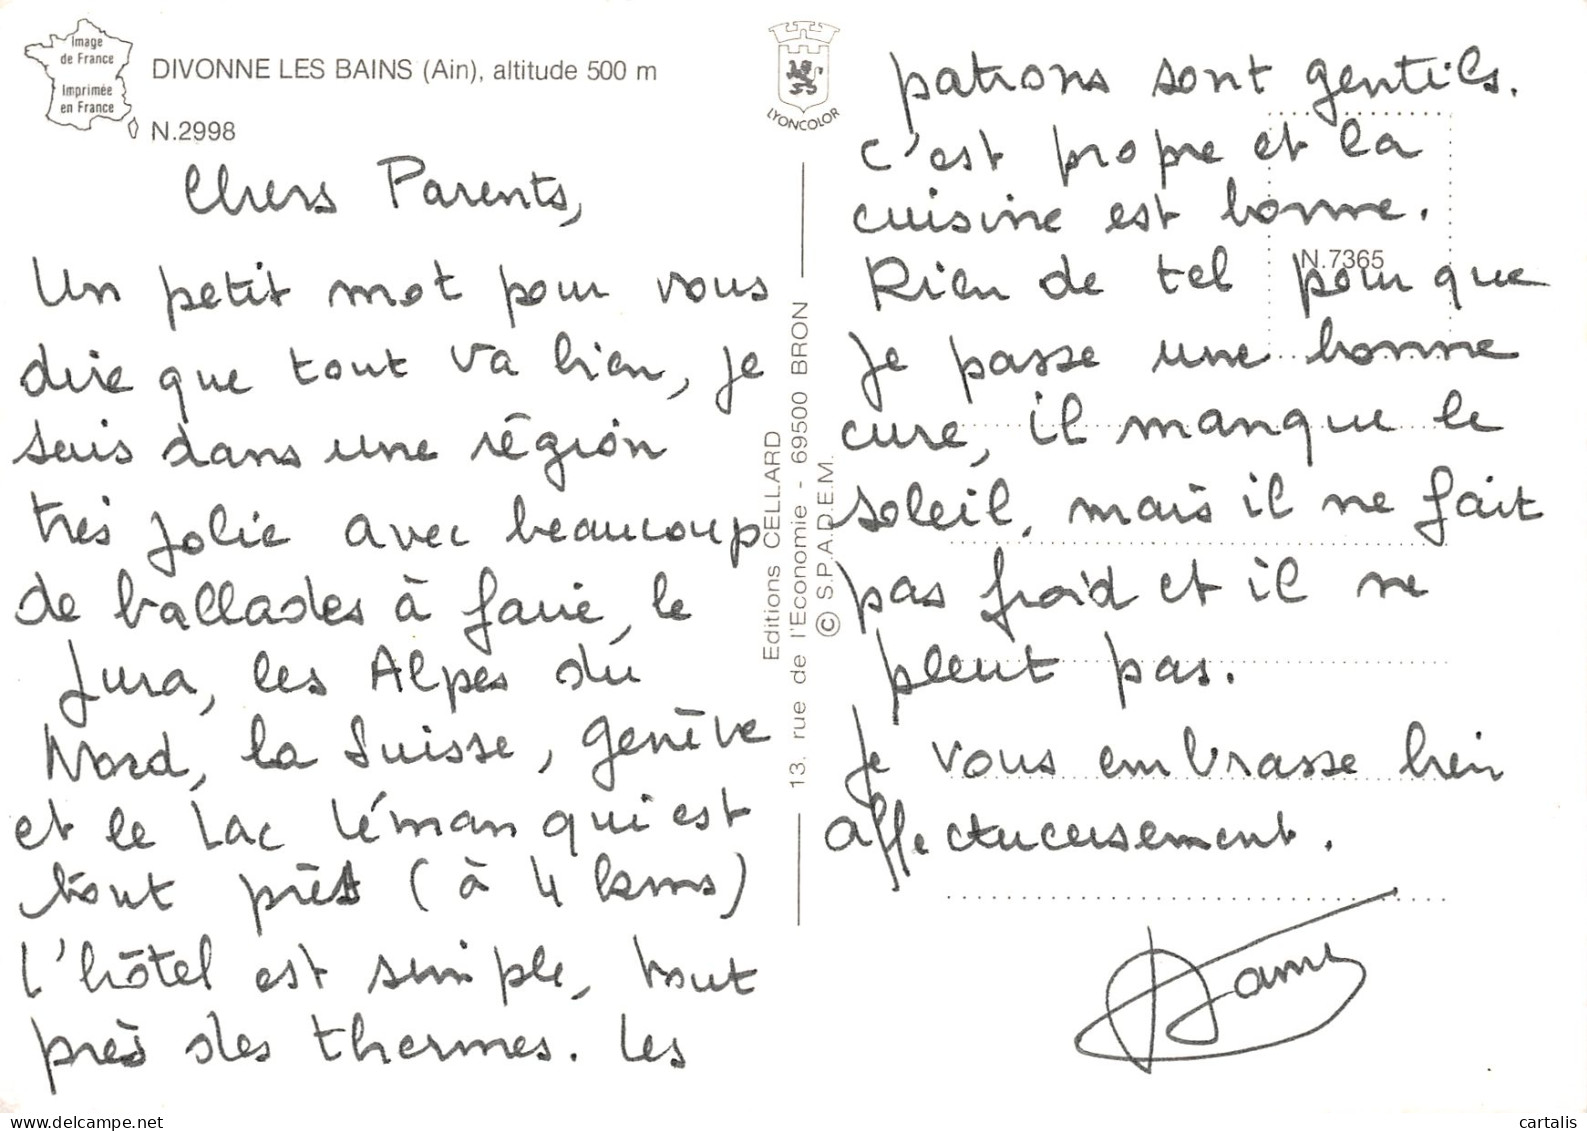 Image
de France
Imprimée
en France
DIVONNE LES BAINS (Ain), altitude 500 m
N.2998
Chers Parents,
Un petit mot pour vous
dire que tout va bien, je
suis dans une région
très jolie avec beaucoup
de ballades à faire, le
Jura, les Alpes du
Nord, la Suisse, Genève
et le Lac Léman qui est
tout près (à 4 kms)
l'hôtel est simple, tout
près des thermes. Les
Editions CELLARD
13, rue de l'Economie - 69500 BRON
© S.P.A.D.E.M.
LYONCOLOR
N.7365
patrons sont gentils.
c'est propre et la
cuisine est bonne.
Rien de tel pour que
je passe une bonne
cure, il manque le
soleil, mais il ne fait
pas froid et il ne
pleut pas.
Je vous embrasse bien
affectueusement.
cartalis